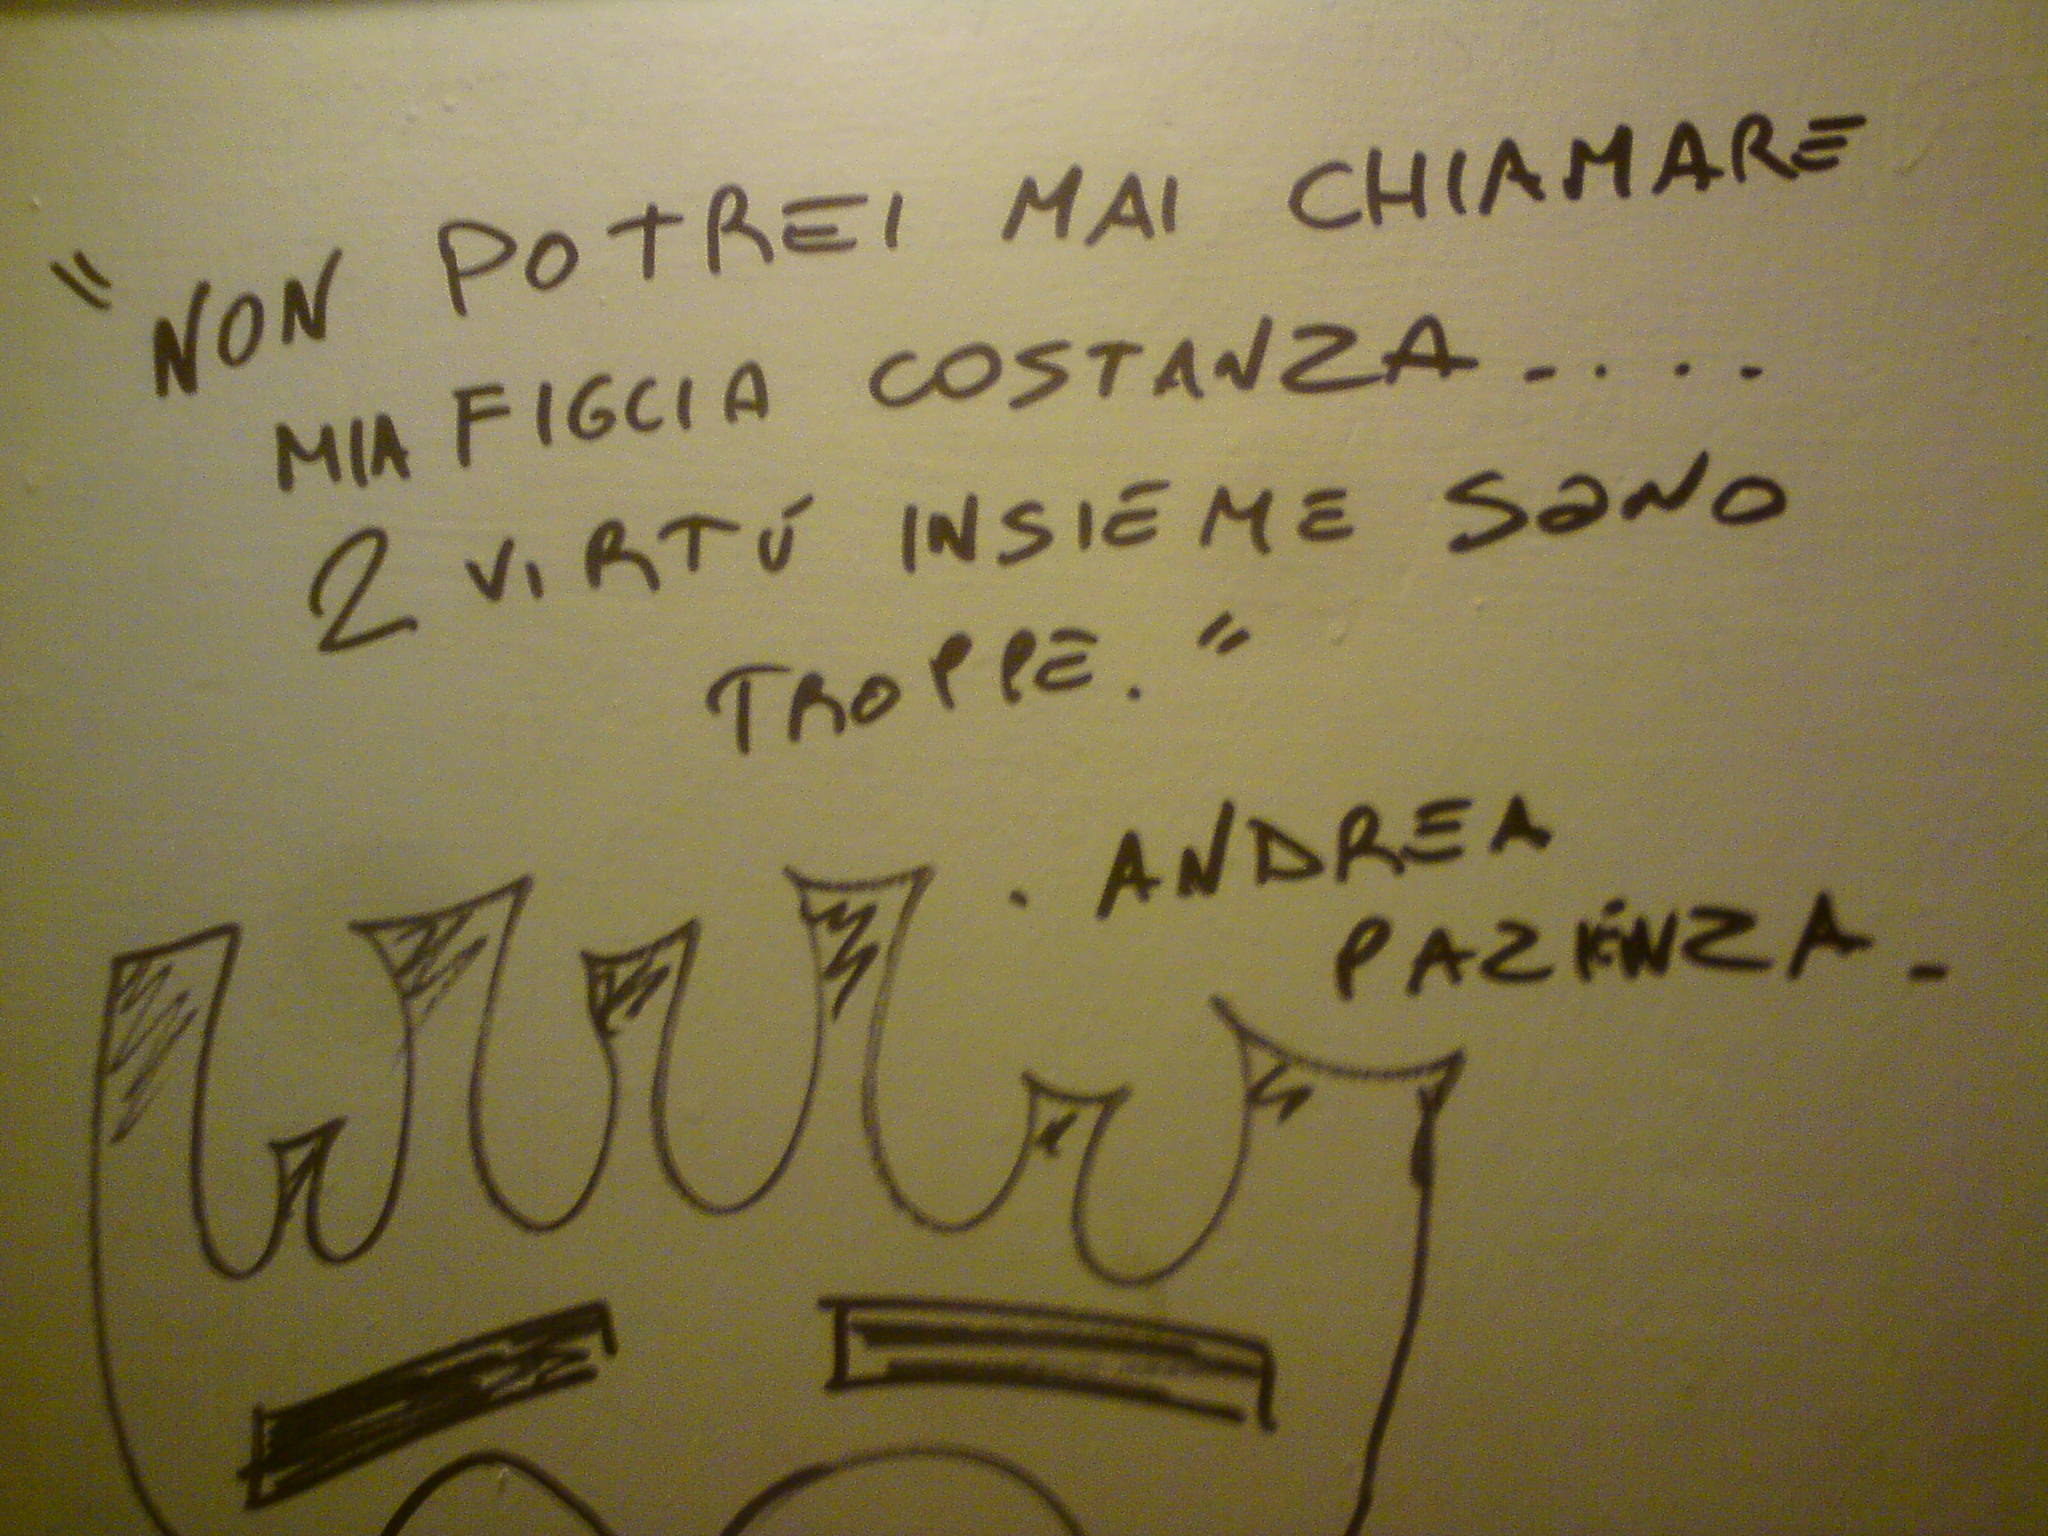 "NON POTREI MAI CHIAMARE
MIA FIGLIA COSTANZA....
2 VIRTÚ INSIEME SONO
TROPPE."
. ANDREA
PAZIENZA -